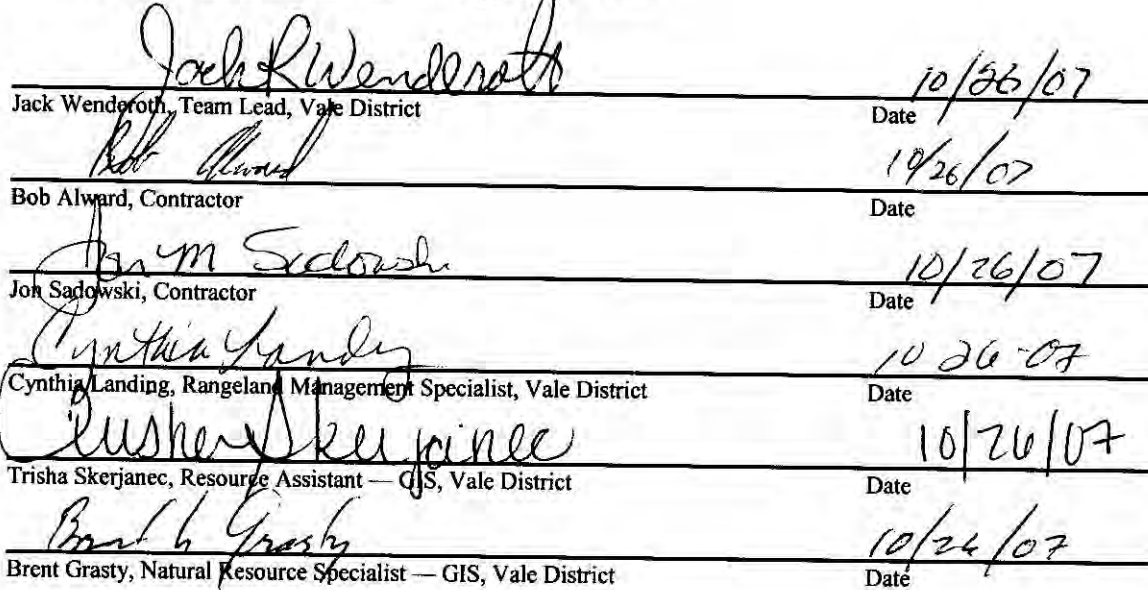 Jack R Wenderoth 10/26/07
Jack Wenderoth, Team Lead, Vale District Date
Bob Alward 10/26/07
Bob Alward, Contractor Date
Jon M Sadowski 10/26/07
Jon Sadowski, Contractor Date
Cynthia Landing 10 26-07
Cynthia Landing, Rangeland Management Specialist, Vale District Date
Trisha Skerjanec 10/26/07
Trisha Skerjanec, Resource Assistant — GIS, Vale District Date
Brent L Grasty 10/26/07
Brent Grasty, Natural Resource Specialist — GIS, Vale District Date